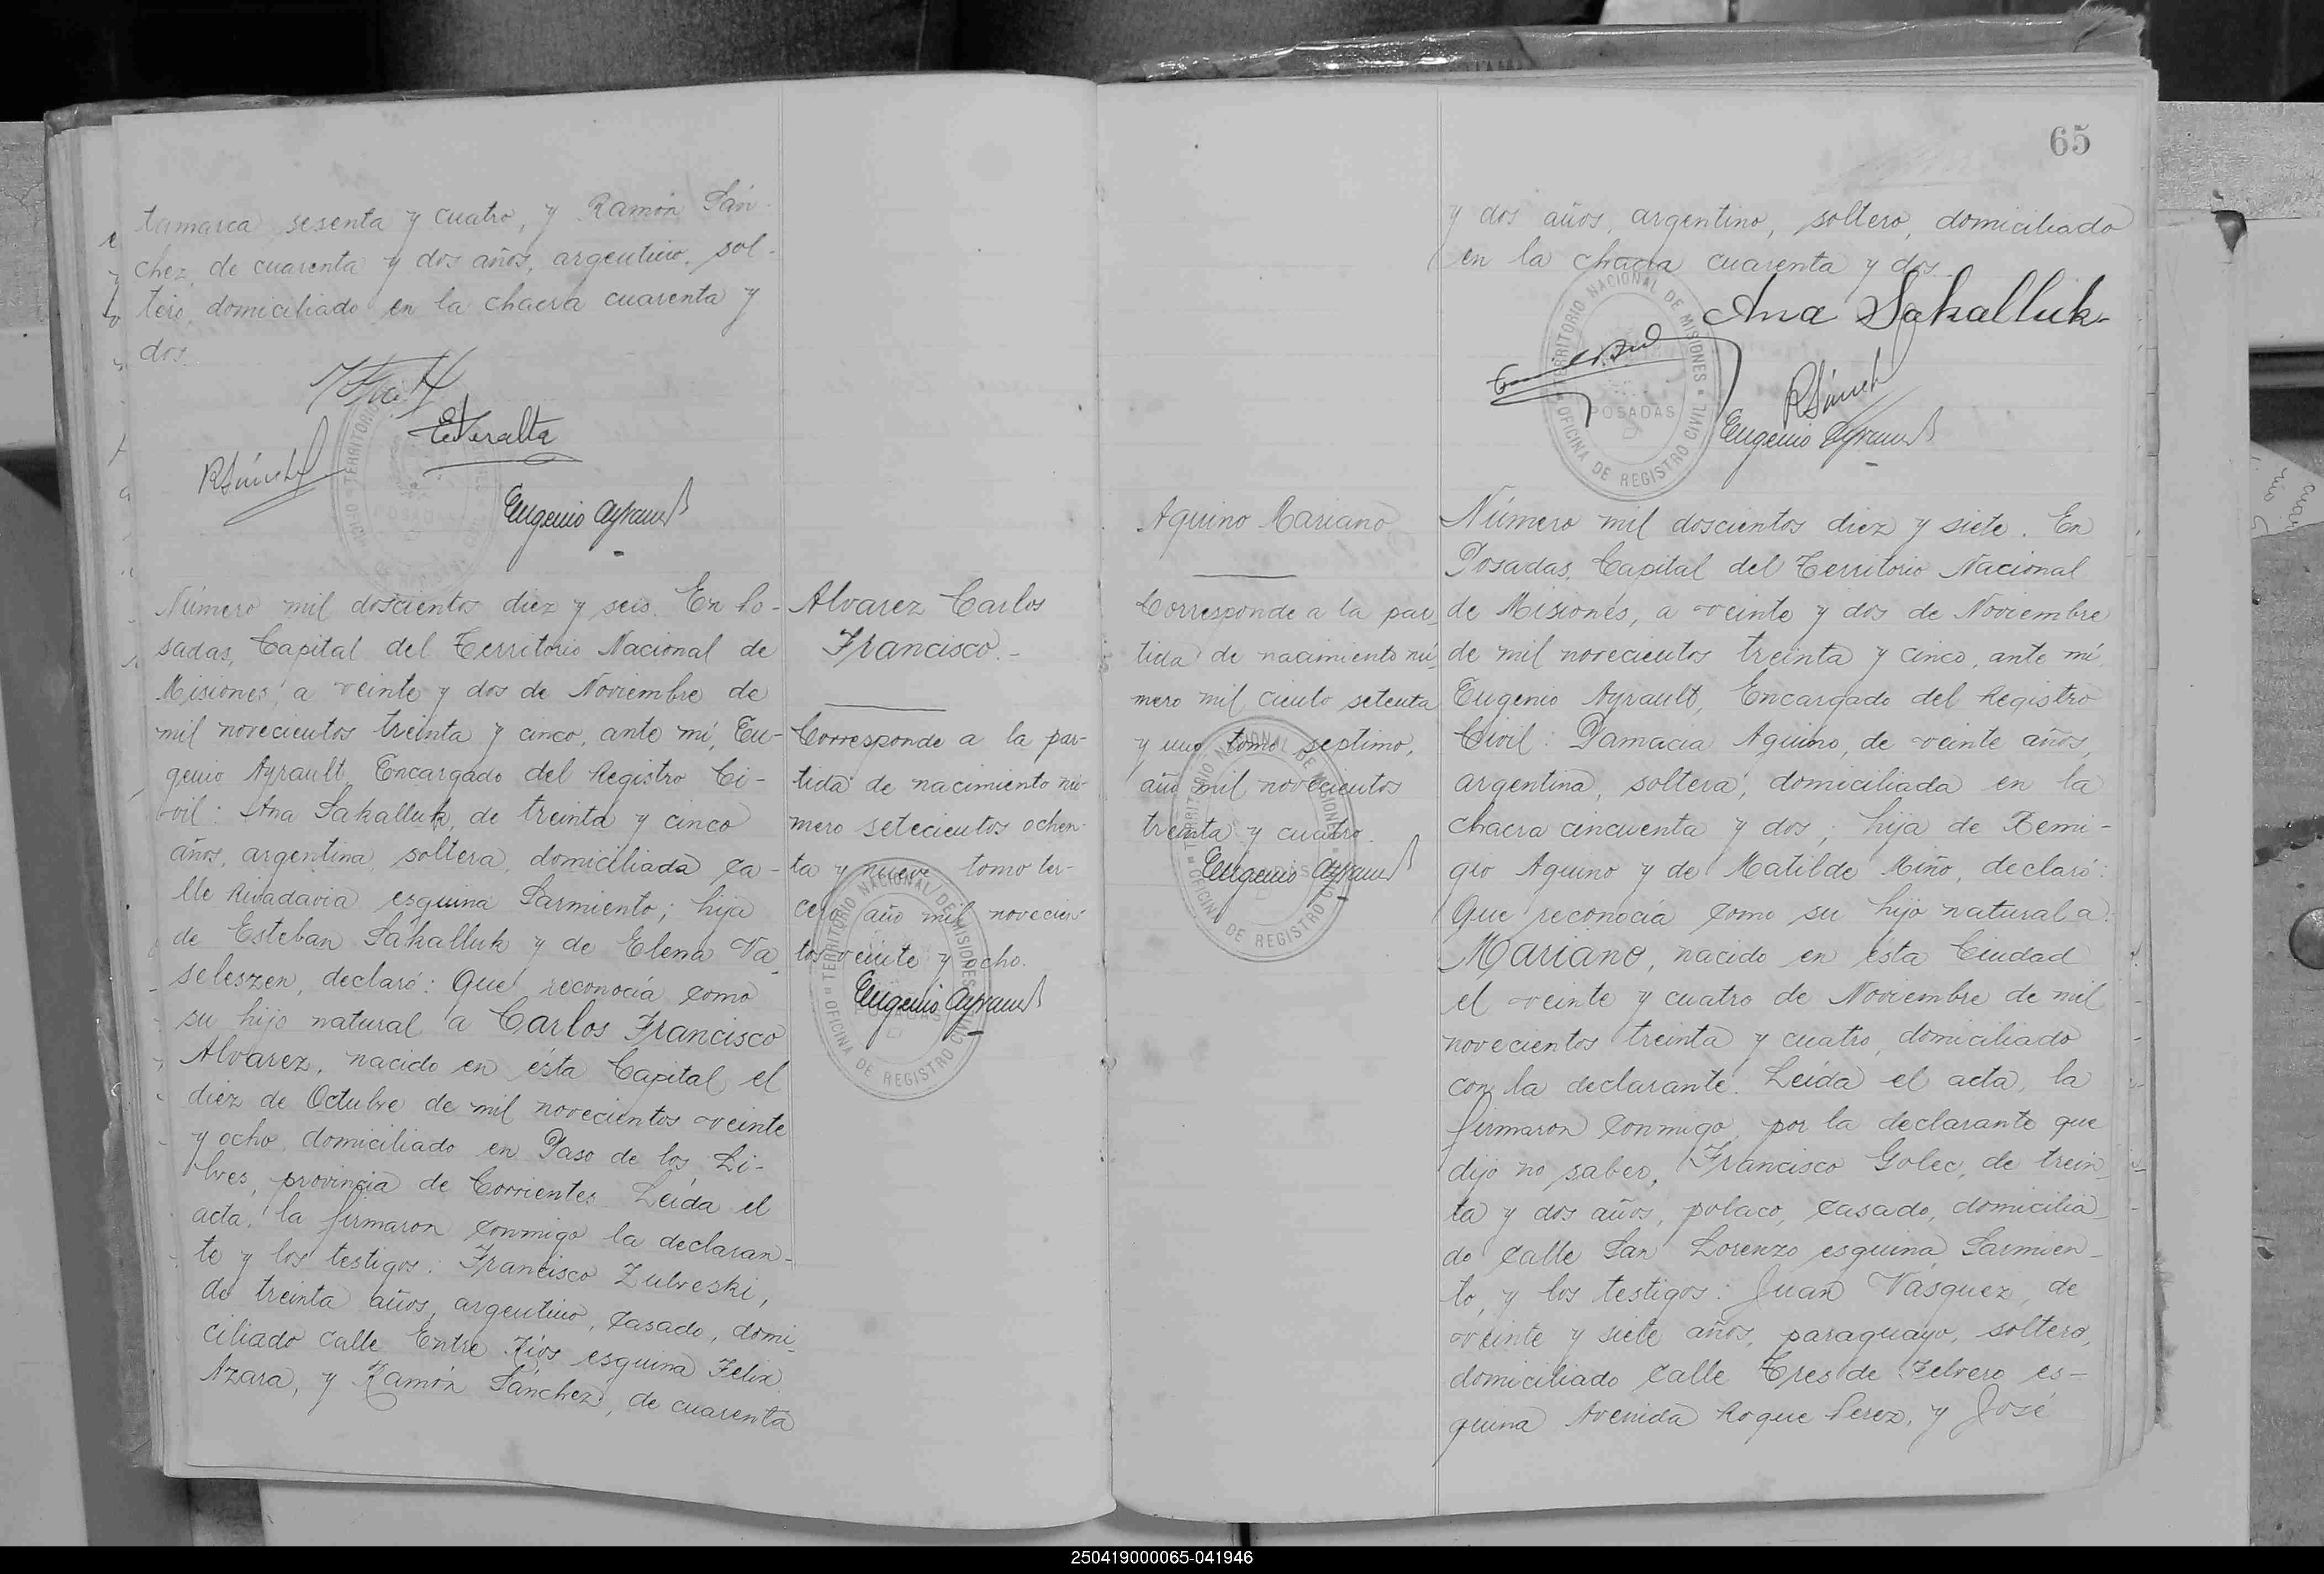 tamarca sesenta y cuatro, y Ramón Sán-
chez, de cuarenta y dos años, argentino, sol-
tero, domiciliado en la chacra cuarenta y
dos.
E Peralta
RSánchez
Eugenio Ayrault
Número mil doscientos diez y seis. En Po-
sadas, Capital del Territorio Nacional de
Misiones, a veinte y dos de Noviembre de
mil novecientos treinta y cinco, ante mí, Eu-
genio Ayrault, Encargado del Registro Ci-
vil: Ana Sakalluk, de treinta y cinco
años, argentina, soltera, domiciliada ca-
lle Rivadavia esquina Sarmiento; hija
de Esteban Sakalluk y de Elena Va-
seleszen, declaró: Que reconocía como
su hijo natural a Carlos Francisco
Alvarez, nacido en ésta Capital el
diez de Octubre de mil novecientos veinte
y ocho, domiciliado en Paso de los Li-
bres, provincia de Corrientes. Leída el
acta, la firmaron conmigo la declaran-
te y los testigos: Francisco Zubreski,
de treinta años, argentino, casado, domi-
ciliado calle Entre Ríos esquina Felix
Azara, y Ramón Sánchez, de cuarenta
Alvarez Carlos
Francisco.-
Corresponde a la par-
tida de nacimiento nú-
mero setecientos ochen-
ta y nueve tomo ter-
cero año mil novecien-
tos veinte y ocho.
Eugenio Ayrault
TERRITORIO NACIONAL DE MISIONES
POSADAS
OFICINA DE REGISTRO CIVIL
65
y dos años, argentino, soltero, domiciliado
en la chacra cuarenta y dos.
Ana Sakalluk
TERRITORIO NACIONAL DE MISIONES
POSADAS
OFICINA DE REGISTRO CIVIL
RSánchez
Eugenio Ayrault
Aquino Mariano
Corresponde a la par-
tida de nacimiento nú-
mero mil ciento setenta
y uno tomo septimo,
año mil novecientos
treinta y cuatro.
Eugenio Ayrault
TERRITORIO NACIONAL DE MISIONES
OFICINA DE REGISTRO CIVIL
Número mil doscientos diez y siete. En
Posadas, Capital del Territorio Nacional
de Misiones, a veinte y dos de Noviembre
de mil novecientos treinta y cinco, ante mí,
Eugenio Ayrault, Encargado del Registro
Civil: Damacia Aquino, de veinte años,
argentina, soltera, domiciliada en la
chacra cincuenta y dos; hija de Remi-
gio Aquino y de Matilde Miño, declaró:
Que reconocía como su hijo natural a:
Mariano, nacido en ésta Ciudad
el veinte y cuatro de Noviembre de mil
novecientos treinta y cuatro, domiciliado
con la declarante. Leída el acta, la
firmaron conmigo, por la declarante que
dijo no saber, Francisco Golec, de trein-
ta y dos años, polaco, casado, domicilia-
do calle San Lorenzo esquina Sarmien-
to, y los testigos: Juan Vasquez, de
veinte y siete años, paraguayo, soltero,
domiciliado calle Tres de Febrero es-
quina Avenida Roque Perez, y José
250419000065-041946